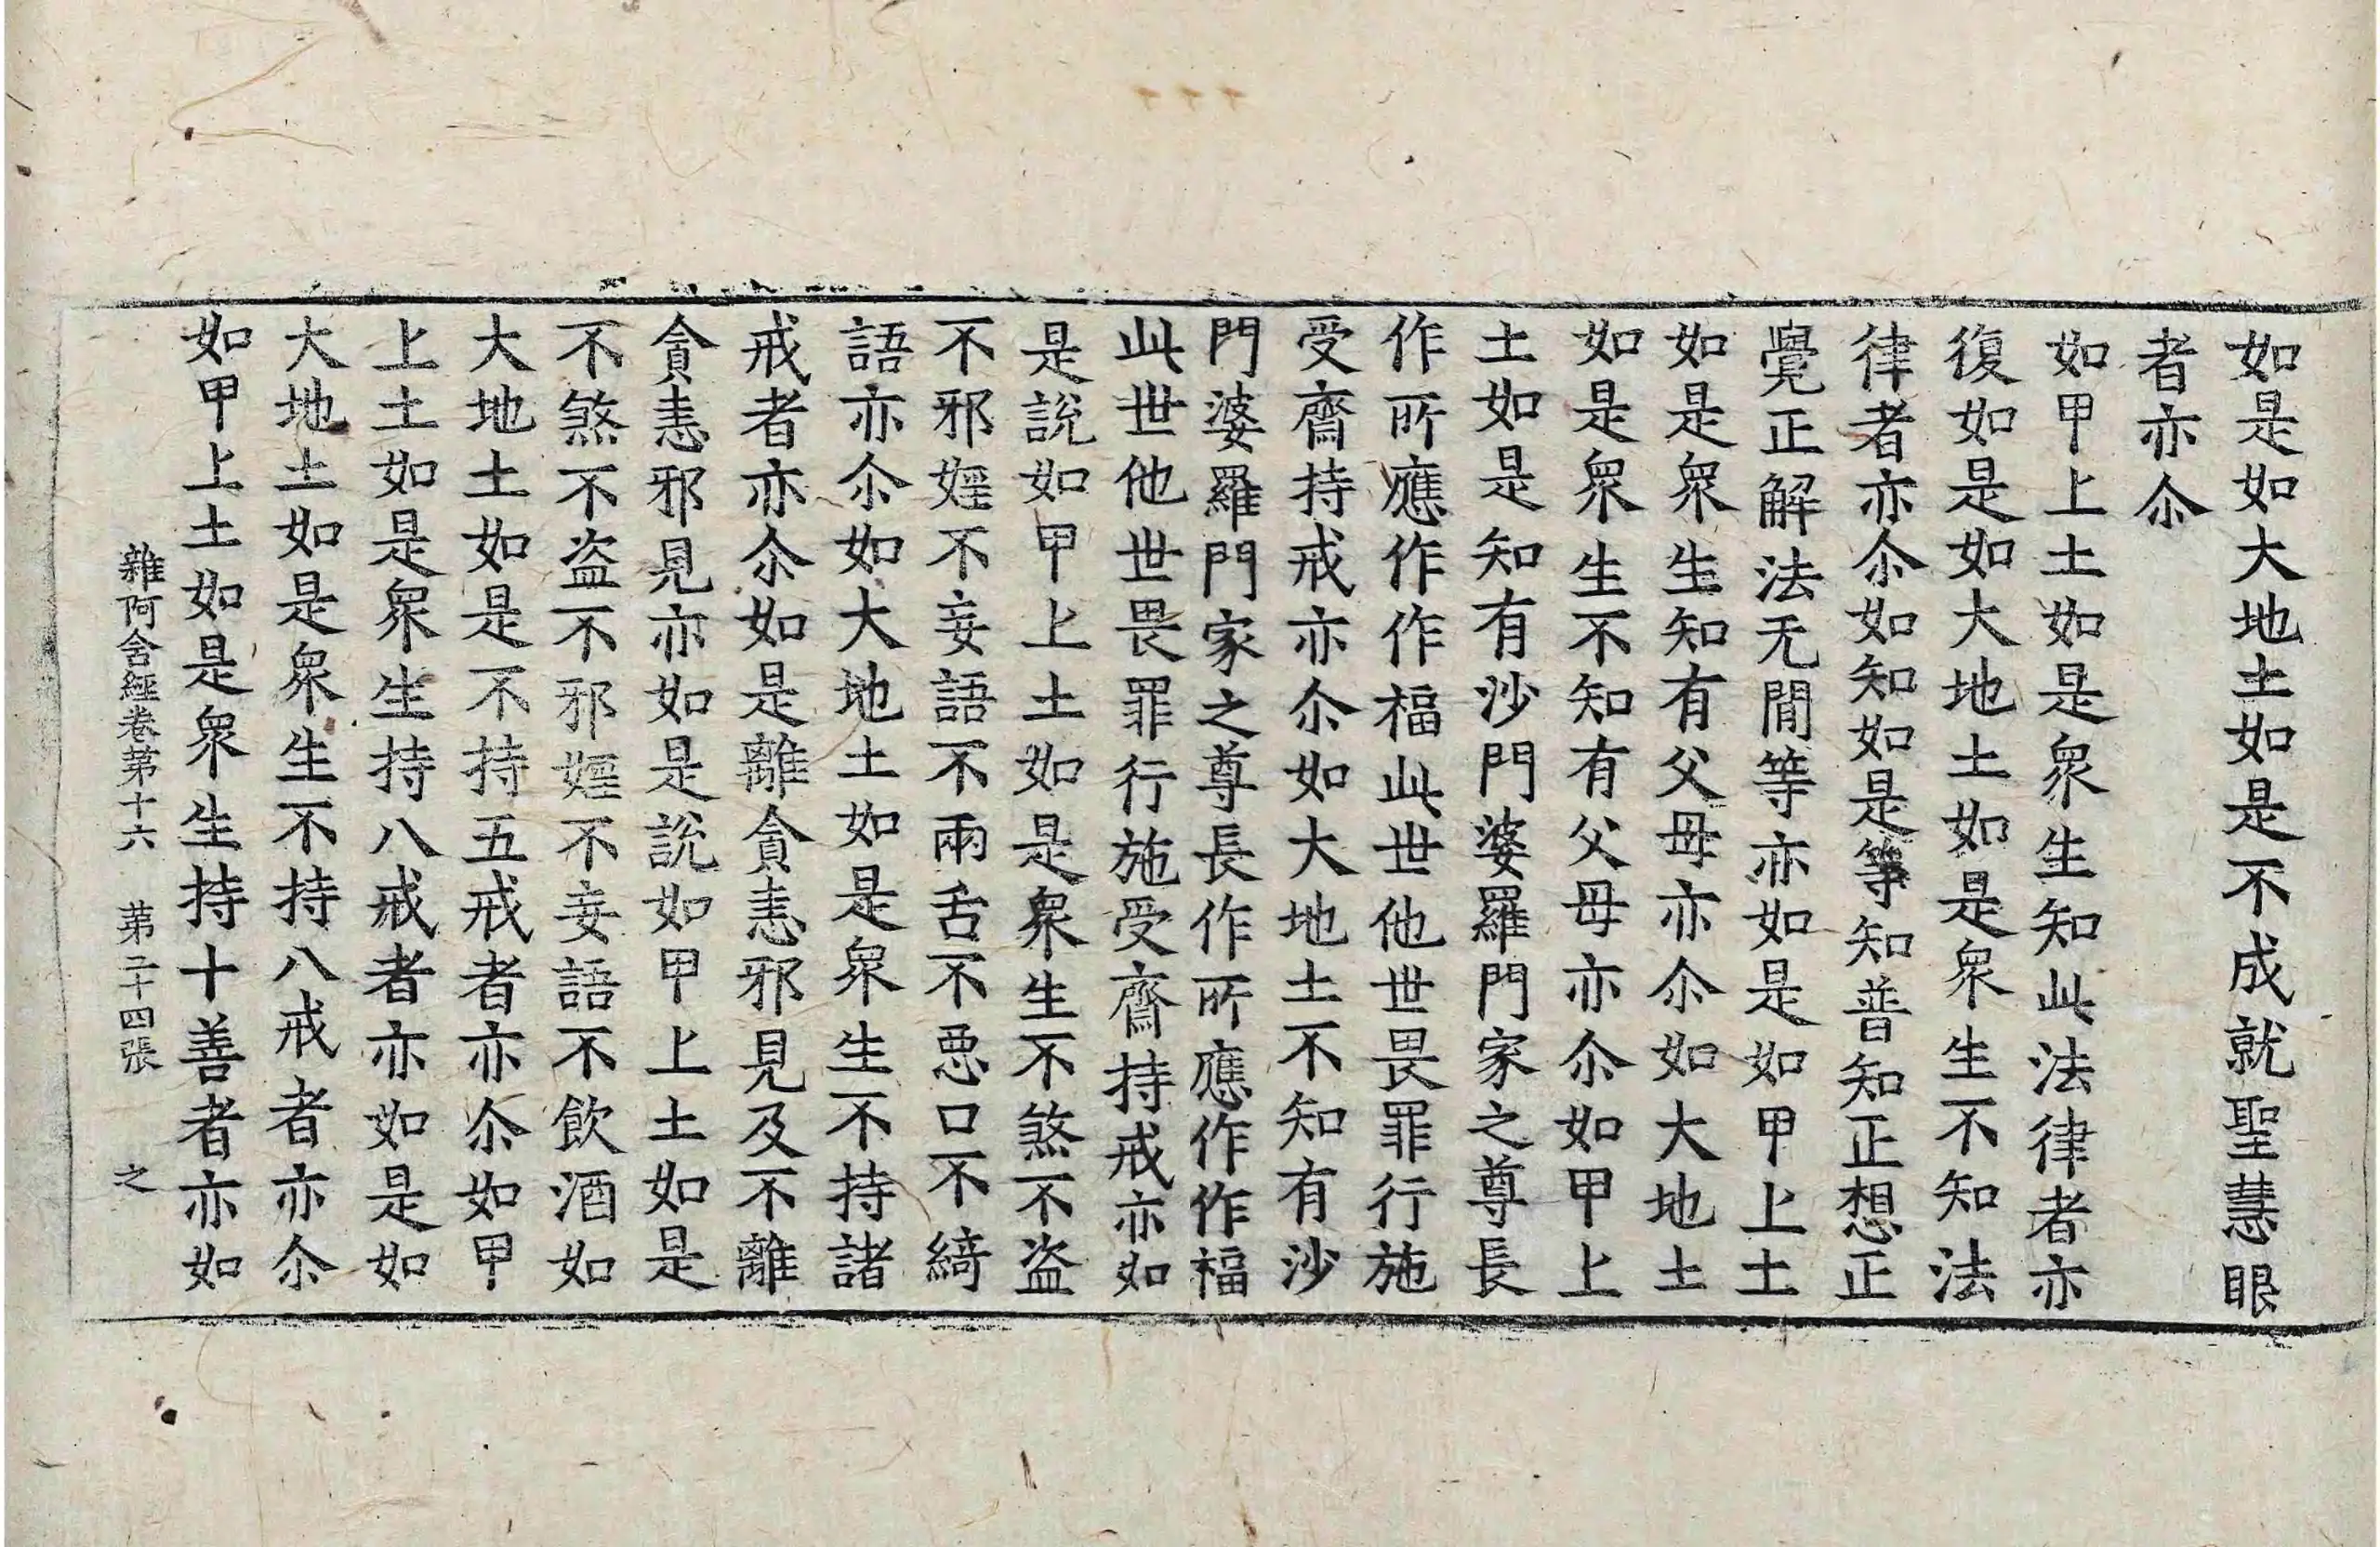 如是如大地土如是不成就聖慧眼
者亦尒
如甲上土如是衆生知此法律者亦
復如是如大地土如是衆生不知法
律者亦尒如知如是等知普知正想正
覺正解法无閒等亦如是如甲上土
如是衆生知有父母亦尒如大地土
如是衆生不知有父母亦尒如甲上
土如是知有沙門婆羅門家之尊長
作所應作作福此世他世畏罪行施
受齋持戒亦尒如大地土不知有沙
門婆羅門家之尊長作所應作作福
此世他世畏罪行施受齋持戒亦如
是說如甲上土如是衆生不煞不盜
不邪婬不妄語不兩舌不惡口不綺
語亦尒如大地土如是衆生不持諸
戒者亦尒如是離貪恚邪見及不離
貪恚邪見亦如是說如甲上土如是
不煞不盜不邪婬不妄語不飲酒如
大地土如是不持五戒者亦尒如甲
上土如是衆生持八戒者亦如是如
大地土如是衆生不持八戒者亦尒
如甲上土如是衆生持十善者亦如
雜阿含經卷第十六 第二十四張 之